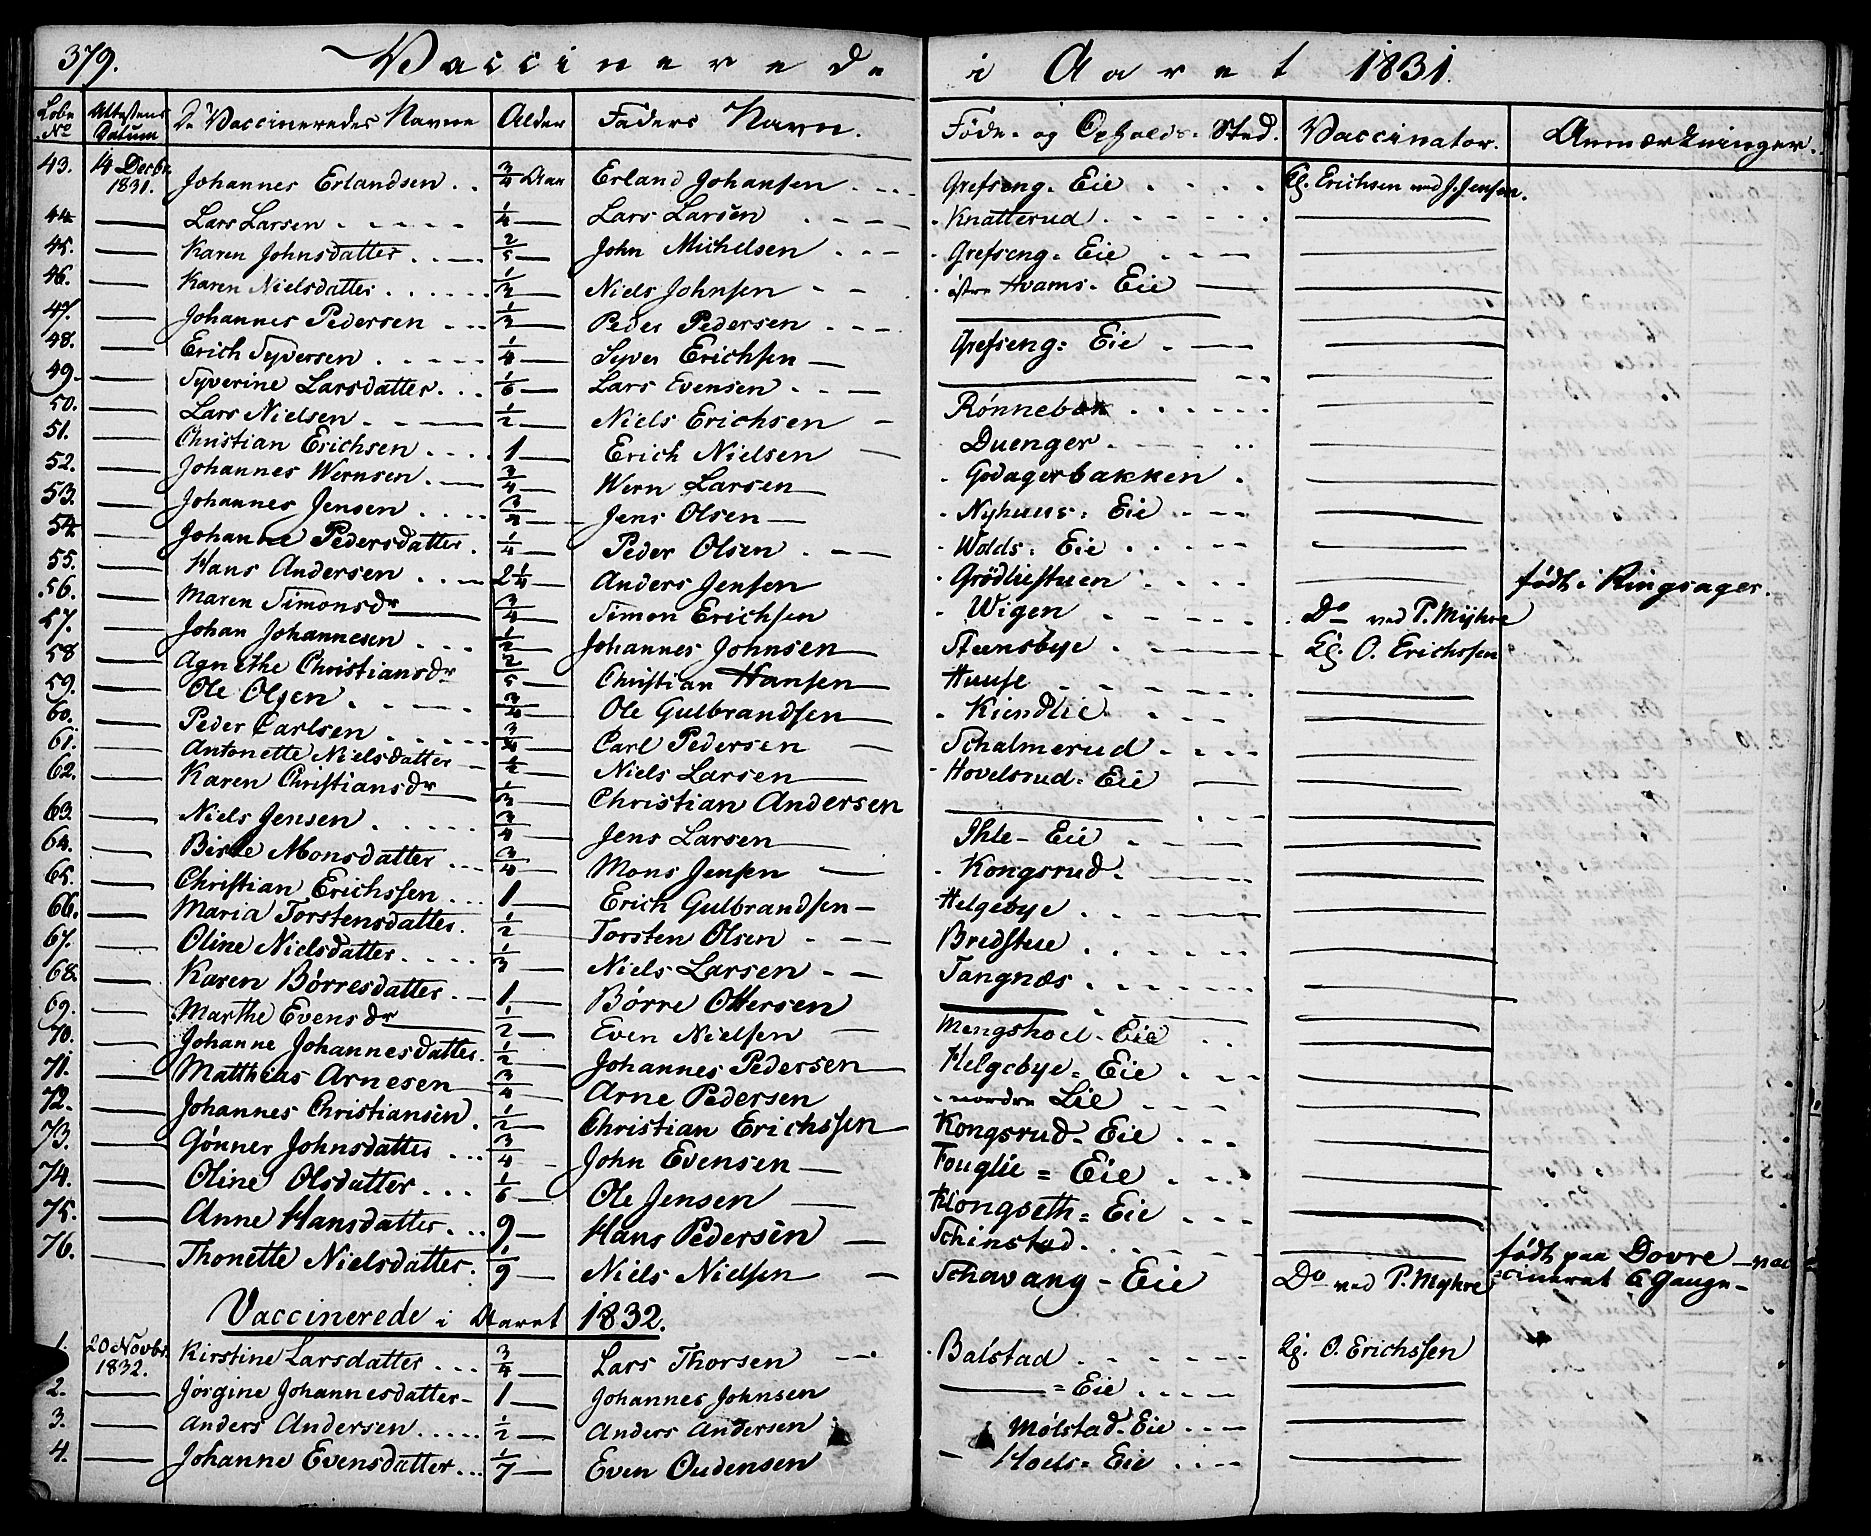 379. Vaccinerede i Aaret 1831.
Løbe No Attestens Datum De Vaccineredes Navne Alder Faders Navn. Føde- og Opholds-Sted. Vaccinator. Anmærkninger.
43. 14 Decbr. 1831. Johannes Erlandsen 3/4 Aar Erland Johansen Grefseng-Eie Kl. Erichsen ved J. Jensen.
44 — Lars Larsen 1/4 — Lars Larsen Knatterud —
45. — Karen Johnsdatter 2/5 — John Michelsen Grefseng-Eie —
46. — Karen Nielsdatter 1/2 — Niels Johnsen østre Hvams-Eie —
47. — Johannes Pedersen 1/3 — Peder Pedersen — —
48. — Erich Syversen 1/4 — Syver Erichsen Grefseng-Eie —
49. — Syverine Larsdatter 1/6 — Lars Evensen — —
50. — Lars Nielsen 1/2 — Niels Erichsen Rønnebæk —
51. — Christian Erichsen 1 — Erich Nielsen Duenger —
52. — Johannes Wernsen 3/4 — Wern Larsen Godagerbakken —
53. — Johannes Jensen — Jens Olsen Nyhuus-Eie —
54 — Johanne Pedersdatter 1/4 — Peder Olsen Wolds-Eie —
55. — Hans Andersen 2 1/4 — Anders Jensen Grödliestuen — født i Ringsager.
56. — Maren Simonsdr 3/4 — Simon Erichsen Wigen Do ved P. Myhre
57. — Johan Johannesen 1/2 — Johannes Johnsen Steensbye Kl. O. Erichssen
58 — Agnethe Christiansdr 2/5 — Christian Hansen Huuse —
59. — Ole Olsen 3/4 — Ole Gulbrandsen Kiendlie —
60. — Peder Carlsen 3/4 — Carl Pedersen Schalmerud —
61. — Antonette Nielsdatter 1/2 — Niels Larsen Hovelsrud-Eie —
62. — Karen Christiansdr 1/3 — Christian Andersen — —
63. — Niels Jensen 3/4 — Jens Larsen Ihle-Eie —
64. — Birte Monsdatter 3/4 — Mons Jensen Kongsrud —
65. — Christian Erichssen 1 — Erich Gulbrandsen Helgebye —
66. — Maria Torstensdatter 1/2 Torsten Olsen Bredstue —
67. — Oline Nielsdatter 1/3 — Niels Larsen Tangnæs —
68. — Karen Børresdatter 1 — Børre Ottersen — —
69. — Marthe Evensdr 1/2 — Even Nielsen Mengshoel-Eie —
70. — Johanne Johannesdatter 1/2 — Johannes Pedersen Helgebye-Eie —
71. — Matthias Arnesen 3/4 — Arne Pedersen nordre Lie —
72. — Johannes Christiansen 1/2 — Christian Erichssen Kongsrud-Eie —
73. — Gønner Johnsdatter 3/4 — John Evensen Fouglie-Eie —
74. — Oline Olsdatter 1/6 — Ole Jensen Klongseth-Eie —
75. — Anne Hansdatter 9 — Hans Pedersen Schinstad — født paa Dovre — vac-
76. — Thonette Nielsdatter 1/9 — Niels Nielsen Schavang-Eie Do ved P. Myhre cineret 6 Gange
Vaccinerede i Aaret 1832.
1. 20 Novbr. 1832. Kirstine Larsdatter 3/4 — Lars Thorsen Balstad Kl. O. Erichssen
2. — Jørgine Johannesdatter 1 — Johannes Johnsen — Eie —
3. — Anders Andersen 1/2 — Anders Andersen Mølstad-Eie —
4. — Johanne Evensdatter 1/7 — Even Oudensen Hoels-Eie —